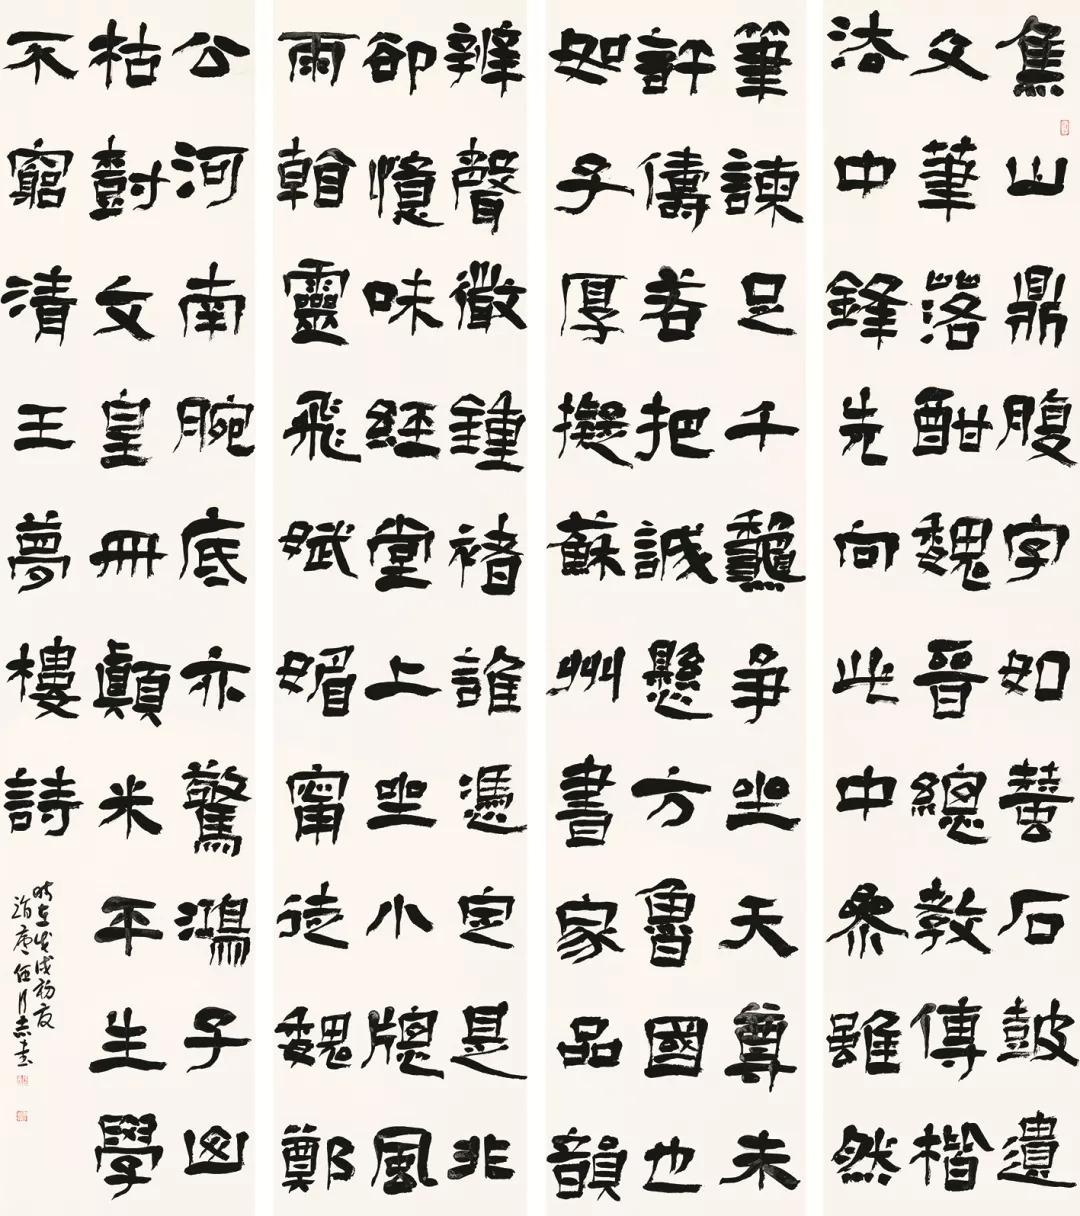 焦山鼎腹字如蠶石鼓遺
文筆落酣魏晉總教傳楷
法中鋒先向此中參雖然
筆諫足千龝爭坐天尊未
許儔若把誠懸方魯國也
如子厚擬蘇州書家品韻
辨聲徵鍾褚誰憑定是非
卻憶味經堂上坐小牕風
雨翰靈飛娬媚甯徒魏鄭
公河南腕底亦驚鴻子山
枯樹文皇冊顛米平生學
不窮清王夢樓詩
時在戊戌初夏